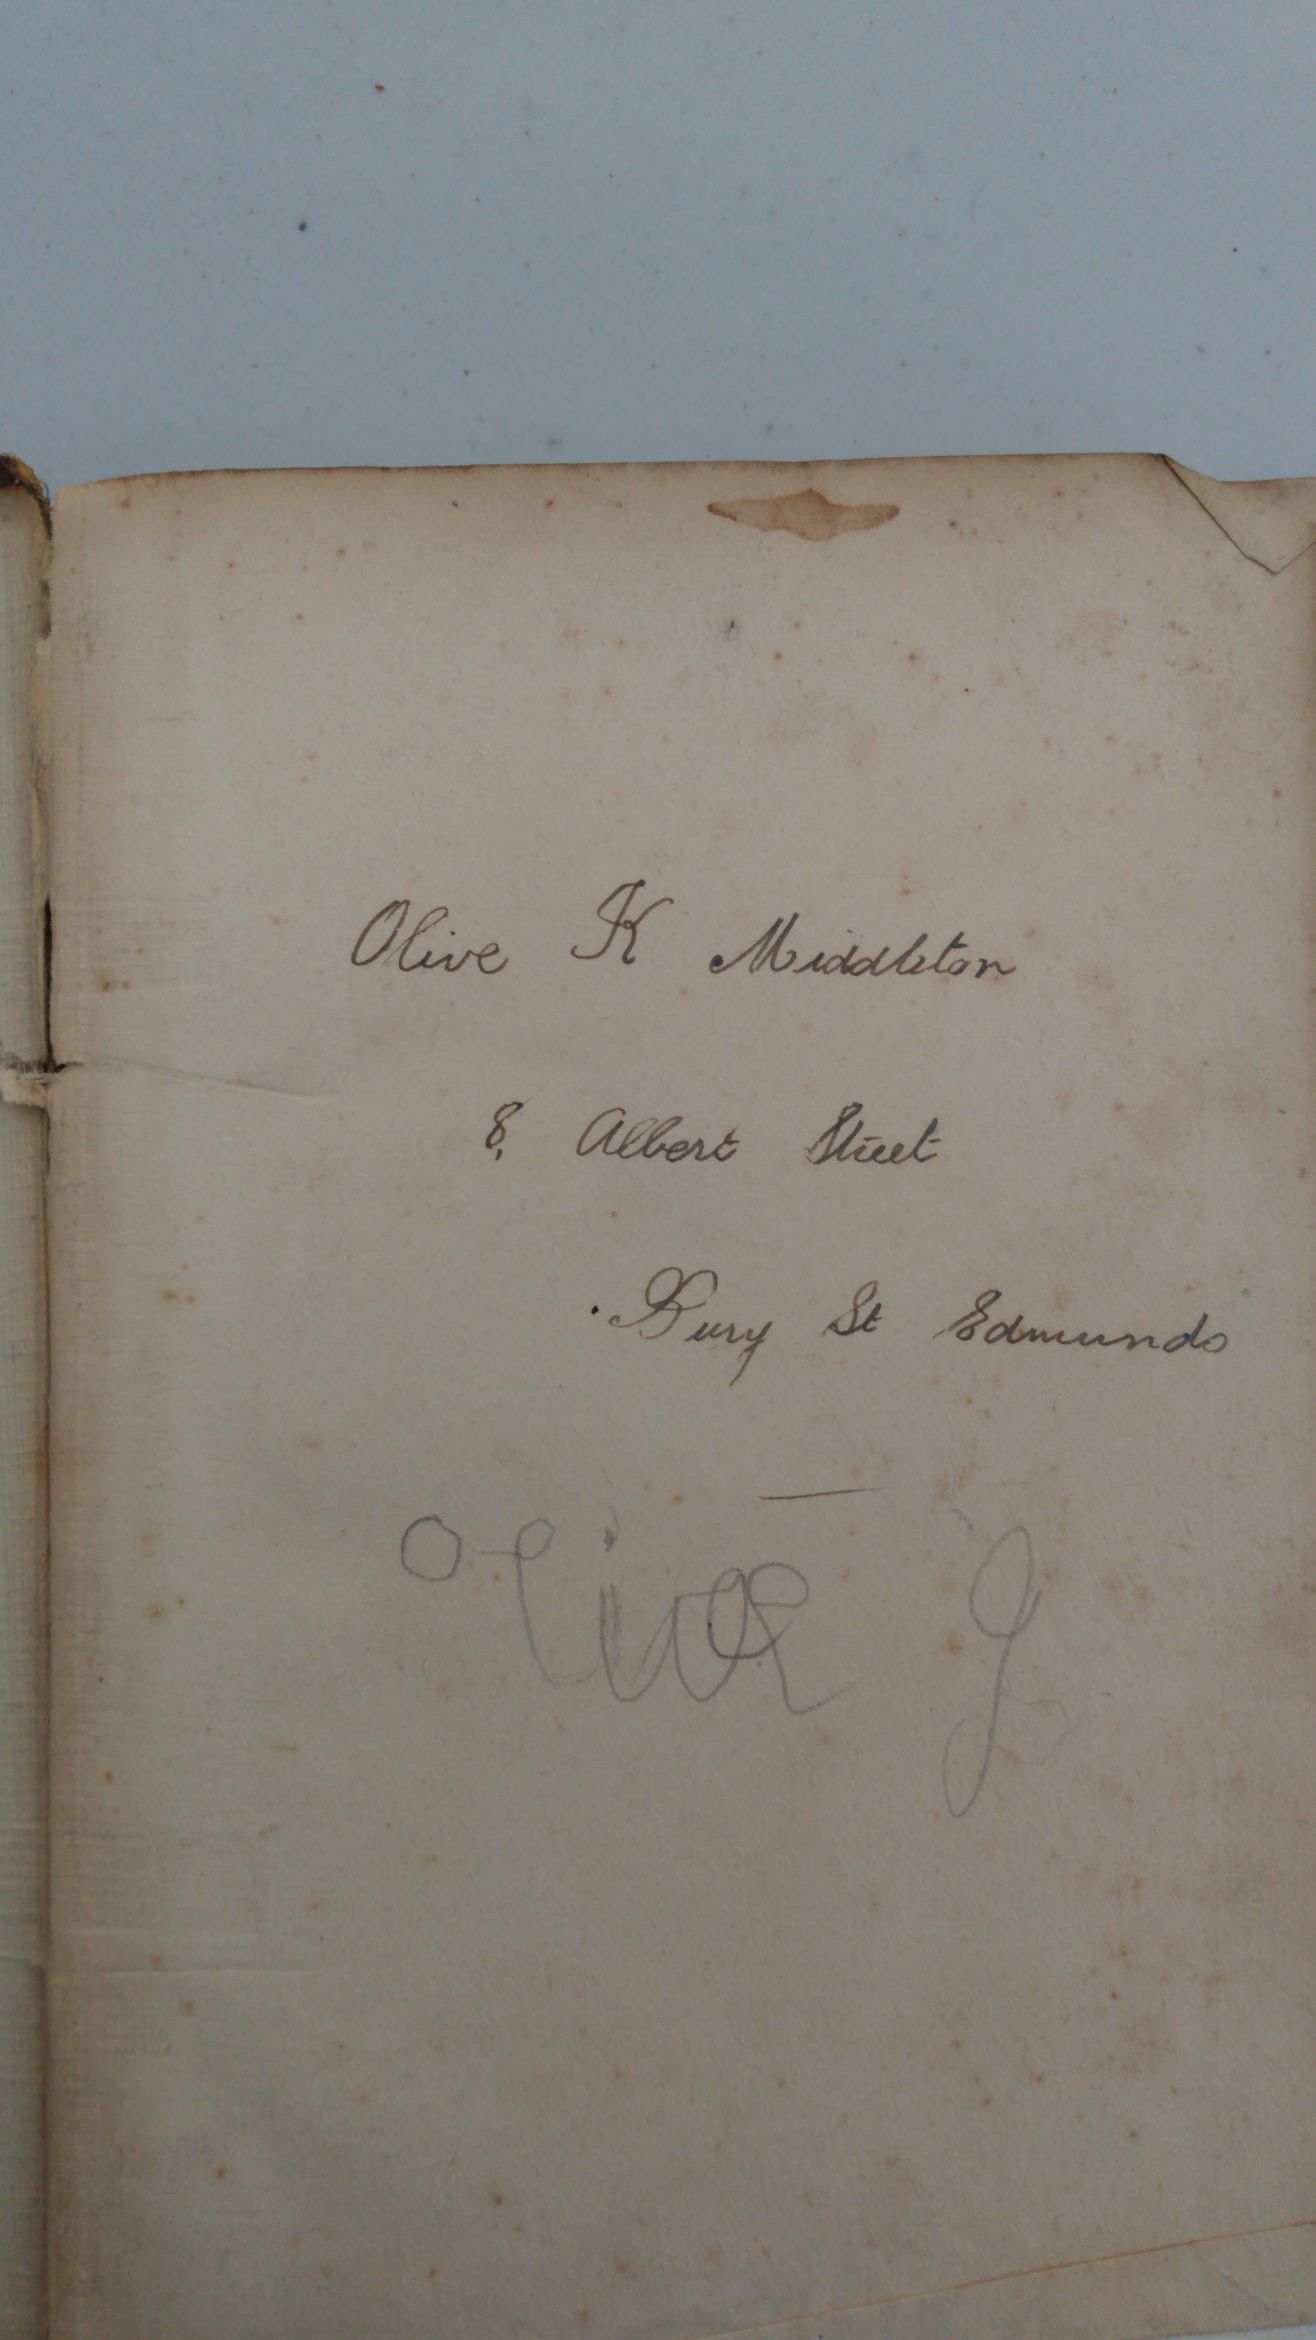 Olive K Middleton
8, Albert Street
Bury St Edmunds
Olive